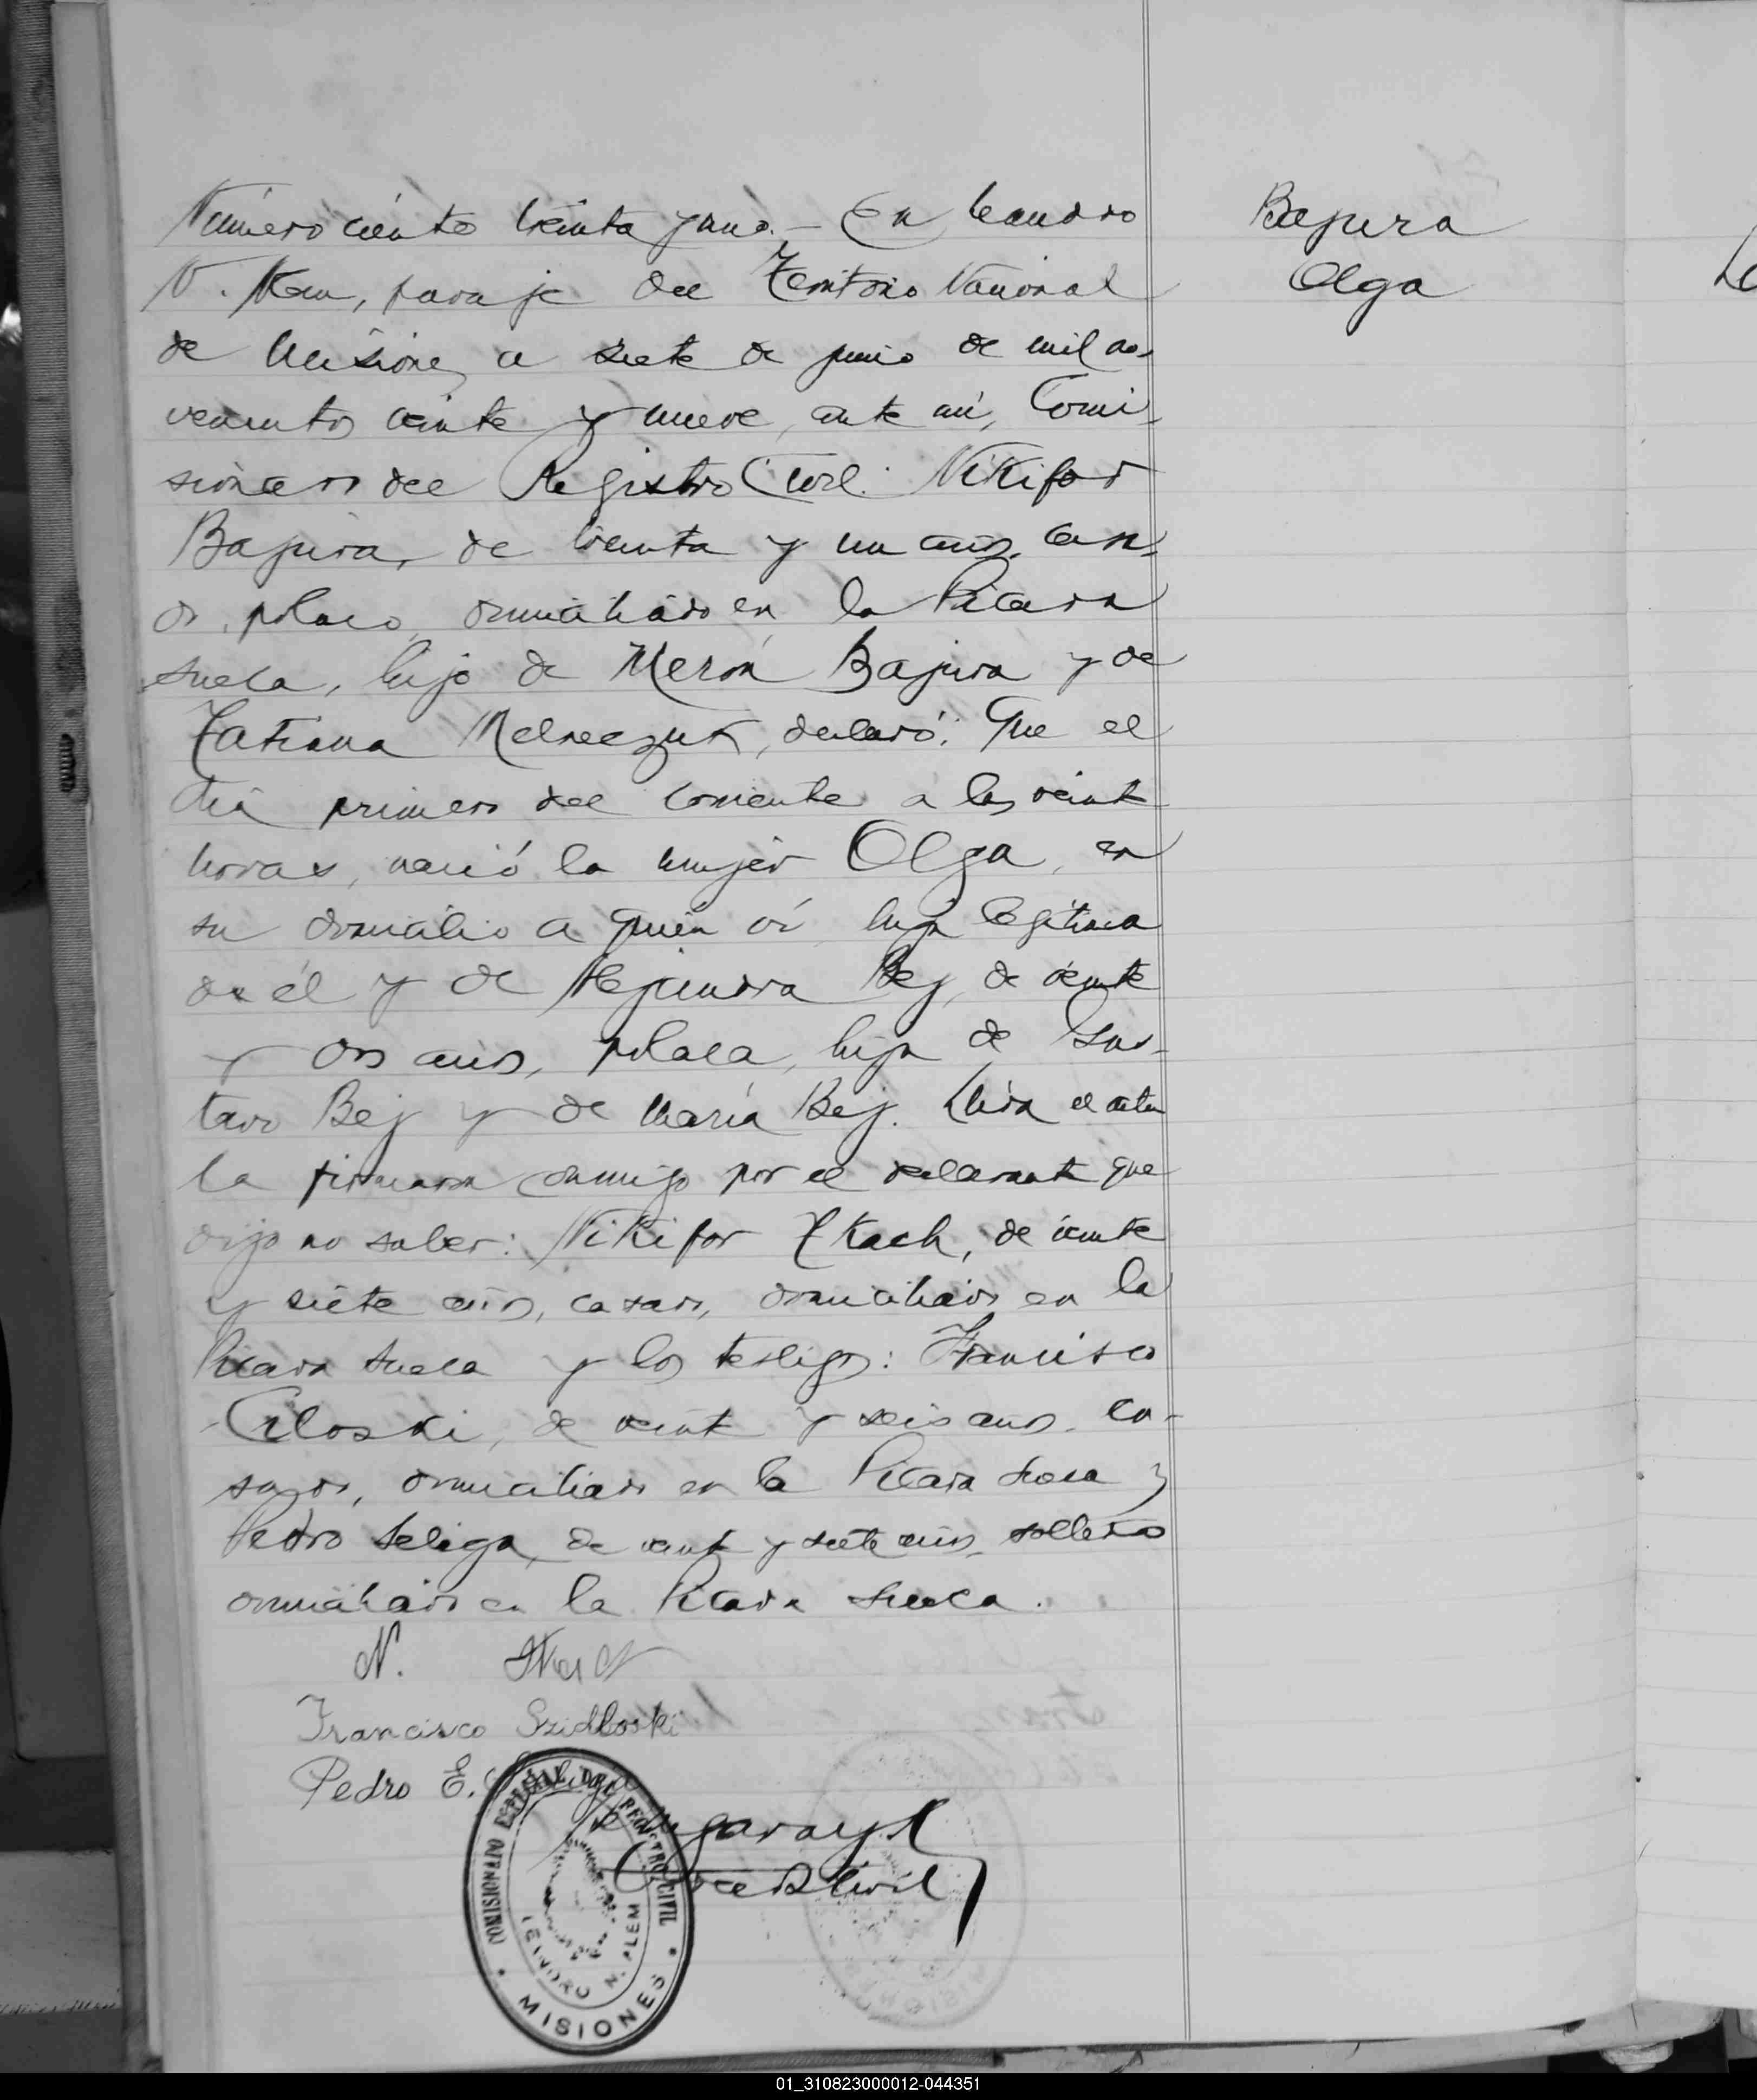 Número ciento treinta y uno.- En Leandro
N. Alem, paraje del Territorio Nacional
de Misiones, a siete de junio de mil no-
vecientos veinte y nueve, ante mí, Comi-
sionado del Registro Civil: Nikifor
Bajura, de treinta y un años, casa-
do, polaco, domiciliado en la Picada
Sueca, hijo de Merón Bajura y de
Tatiana Melneczuk, declaró: Que el
día primero del corriente a las veinte
horas, nació la mujer Olga, en
su domicilio a quién ví, hija legítima
de él y de Alejandra Bej, de veinte
y dos años, polaca, hija de Gus-
tavo Bej y de María Bej. Leida el acta
la firmaron conmigo por el declarante que
dijo no saber: Nikifor Tkach, de veinte
y siete años, casado, domiciliado en la
Picada Sueca y los testigos: Francisco
Ciloski, de veinte y seis años, ca-
sado, domiciliado en la Picada Sueca y
Pedro Seliga, de veinte y siete años, soltero
domiciliado en la Picada Sueca.
Bajura
Olga
N.
Francisco Szidloski
Pedro E. Seliga
COMISIONADO ESPECIAL DEL REGISTRO CIVIL
LEANDRO N. ALEM
MISIONES
01_310823000012-044351